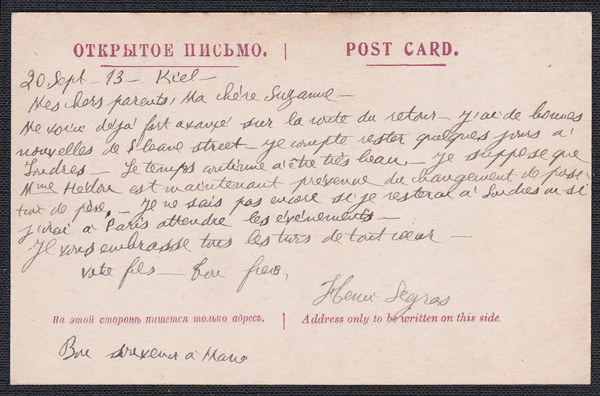 ОТКРЫТОЕ ПИСЬМО. | POST CARD.
20 Sept - 13 - Kiel -
Mes chers parents, Ma chère Suzanne -
Me voici déjà fort avancé sur la route du retour - j'ai de bonnes
nouvelles de Sloane street - je compte rester quelques jours à
Londres - Le temps continue à être très beau - Je suppose que
Mme est maintenant prévenue du changement de posi-
tion de père. - Je ne sais pas encore si je resterai à Londres ou si
j'irai à Paris attendre les événements -
Je vous embrasse tous les trois de tout cœur -
votre fils - ton frère,
Henri
На этой сторонѣ пишется только адресъ. | Address only to be written on this side.
Bon à